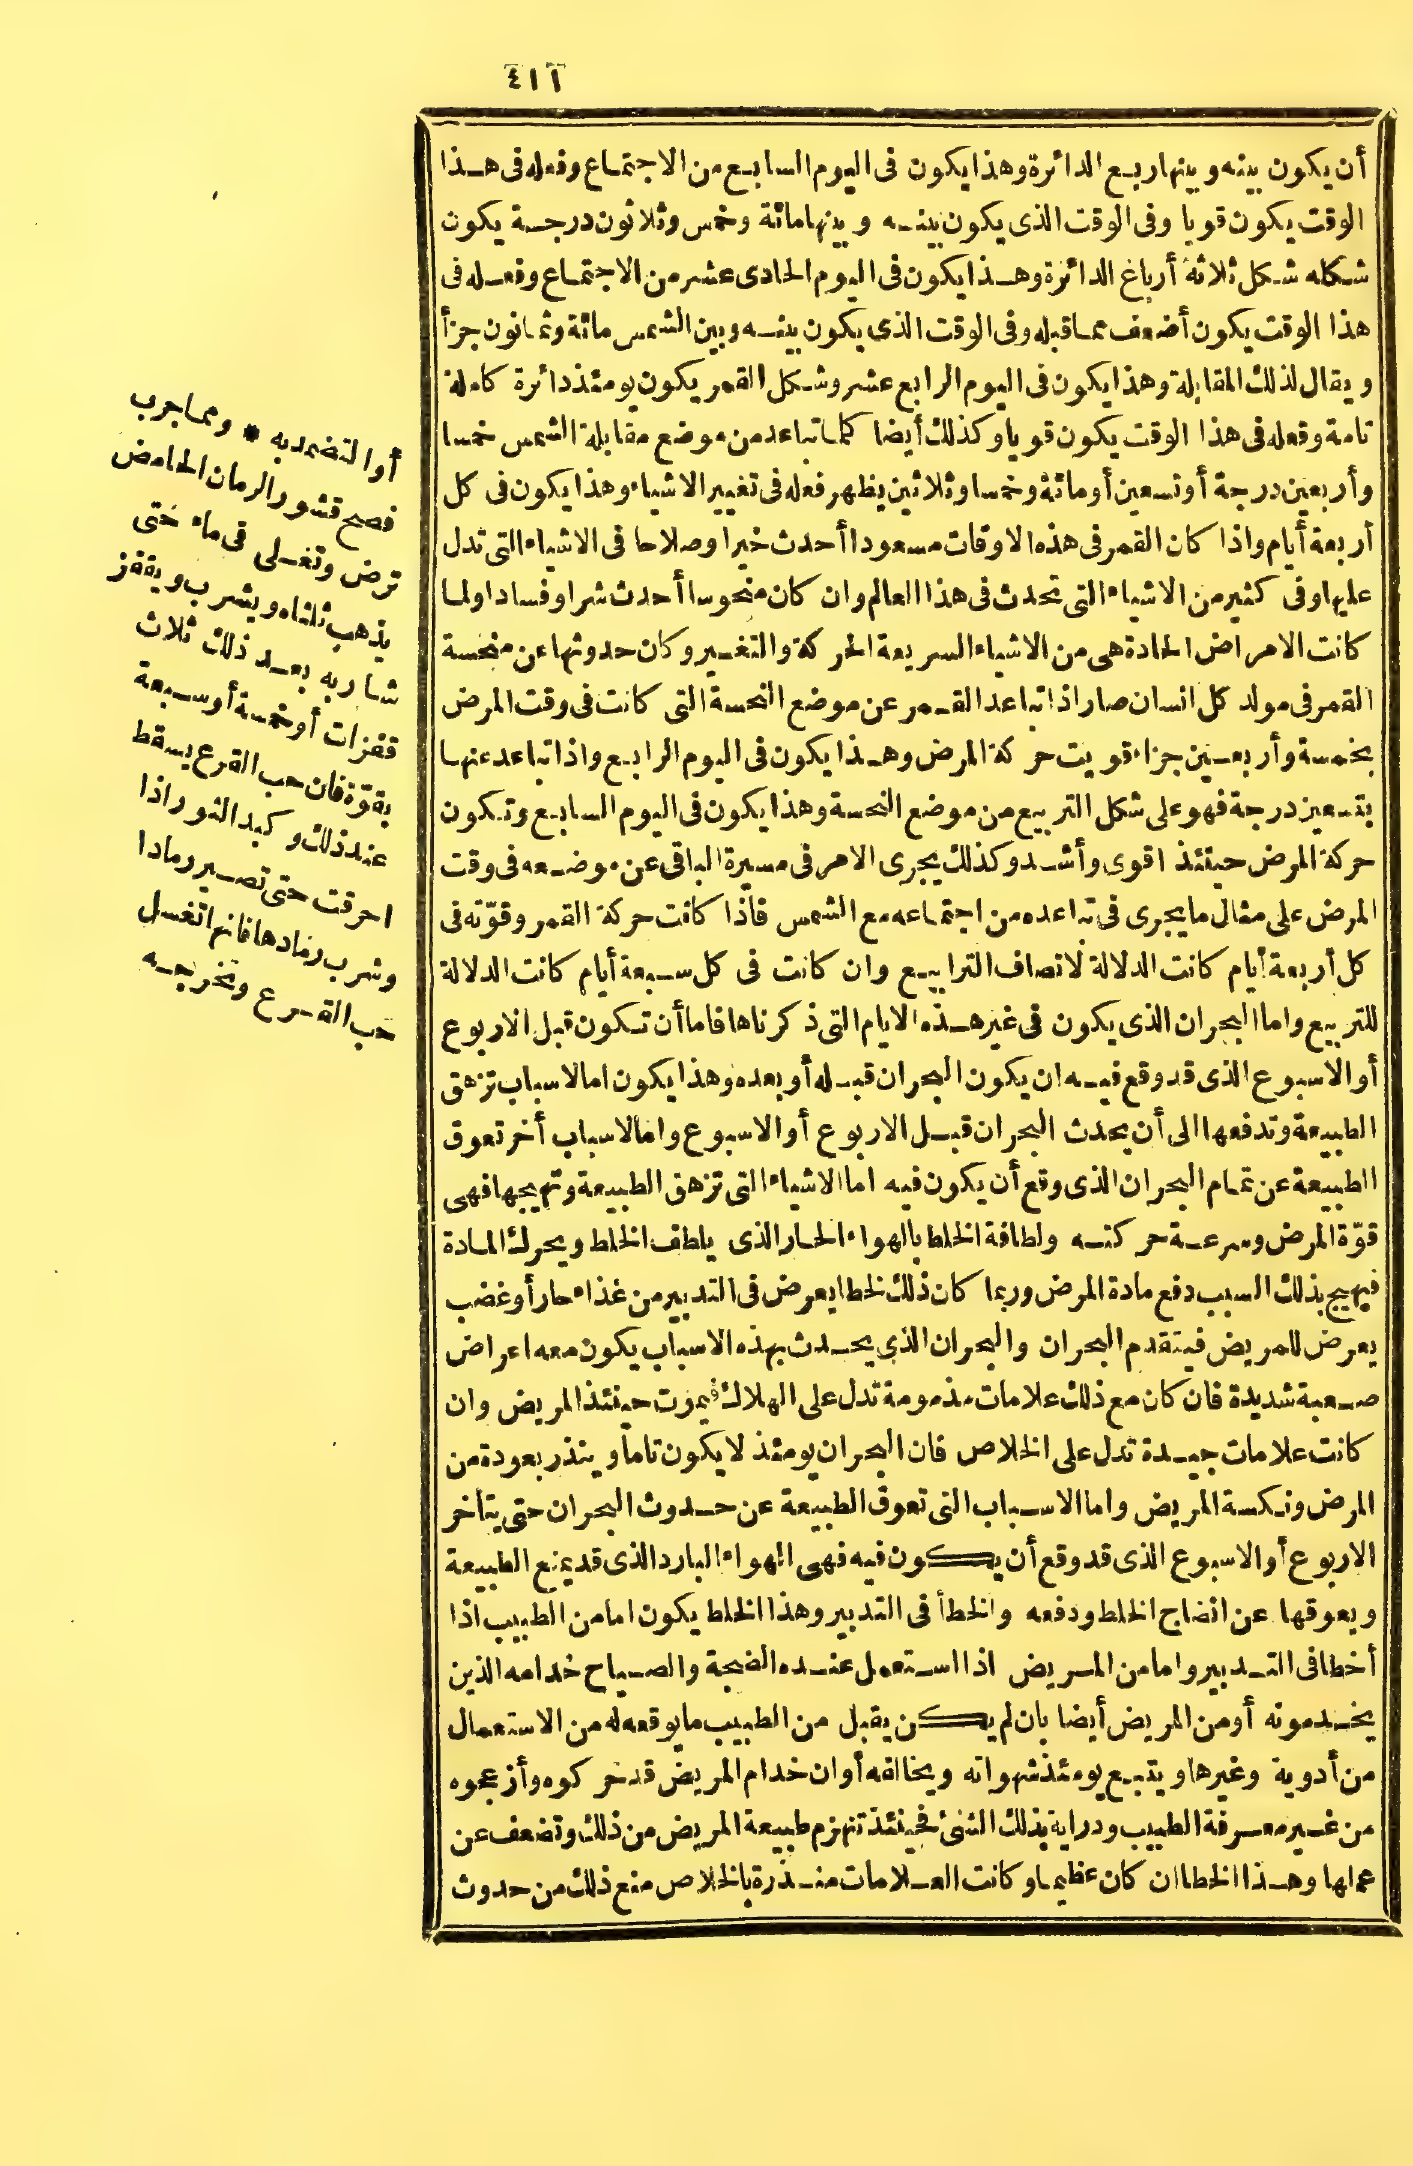 ٤١١
أن يكون بينه وبينها ربع الدائرة وهذا يكون فى اليوم السابع من الاجتماع وفعله فى هذا
الوقت يكون قويا وفى الوقت الذى يكون بينه وبينها مائة وخمس وثلاثون درجة يكون
شكله شكل ثلاثة أرباع الدائرة وهذا يكون فى اليوم الحادى عشر من الاجتماع وفعله فى
هذا الوقت يكون أضعف مما قبله وفى الوقت الذى يكون بينه وبين الشمس مائة وثمانون جزأ
ويقال لذلك المقابلة وهذا يكون فى اليوم الرابع عشر وشكل القمر يكون يومئذ دائرة كاملة
تامة وفعله فى هذا الوقت يكون قويا وكذلك أيضا كلما تباعد من موضع مقابلة الشمس خمسا
وأربعين درجة أو تسعين أو مائة وخمسا وثلاثين يظهر فعله فى تغيير الاشياء وهذا يكون فى كل
أربعة أيام واذا كان القمر فى هذه الاوقات مسعودا أحدث خيرا وصلاحا فى الاشياء التى تدل
عليها وفى كثير من الاشياء التى تحدث فى هذا العالم وان كان منحوسا أحدث شرا وفسادا ولما
كانت الامراض الحادة هى من الاشياء السريعة الحركة والتغير وكان حدوثها عن منحسة
القمر فى مولد كل انسان صار اذا تباعد القمر عن موضع النحسة التى كانت فى وقت المرض
بخمسة وأربعين جزاء قويت حركة المرض وهذا يكون فى اليوم الرابع واذا تباعد عنها
بتسعين درجة فهو على شكل التربيع من موضع النحسة وهذا يكون فى اليوم السابع وتكون
حركة المرض حينئذ اقوى وأشد وكذلك يجرى الامر فى مسيرة الباقى عن موضعه فى وقت
المرض على مثال ما يجرى فى تباعده من اجتماعه مع الشمس فاذا كانت حركة القمر وقوّته فى
كل أربعة أيام كانت الدلالة لانصاف الترابيع وان كانت فى كل سبعة أيام كانت الدلالة
للتربيع واما البحران الذى يكون فى غير هذه الايام التى ذكرناها فاما أن تكون قبل الاربوع
أو الاسبوع الذى قد وقع فيه ان يكون البحران قبله أو بعده وهذا يكون اما لاسباب تزهق
الطبيعة وتدفعها الى أن يحدث البحران قبل الاربوع أو الاسبوع واما لاسباب أخر تعوق
الطبيعة عن تمام البحران الذى وقع أن يكون فيه اما الاشياء التى تزهق الطبيعة وتهيجها فهى
قوّة المرض وسرعة حركته ولطافة الخلط بالهواء الحار الذى يلطف الخلط ويحرك المادة
فيهيج بذلك السبب دفع مادة المرض وربما كان ذلك لخطا يعرض فى التدبير من غذاء حار أو غضب
يعرض للمريض فيتقدم البحران والبحران الذى يحدث بهذه الاسباب يكون معه اعراض
صعبة شديدة فان كان مع ذلك علامات مذمومة تدل على الهلاك فيموت حينئذ المريض وان
كانت علامات جيدة تدل على الخلاص فان البحران يومئذ لا يكون تاما وينذر بعودة من
المرض ونكسة المريض واما الاسباب التى تعوق الطبيعة عن حدوث البحران حتى يتأخر
الاربوع أو الاسبوع الذى قد وقع أن يكون فيه فهى الهواء البارد الذى قد يمنع الطبيعة
ويعوقها عن انضاج الخلط ودفعه والخطأ فى التدبير وهذا الخلط يكون اما من الطبيب اذا
أخطا فى التدبير واما من المريض اذا استعمل عنده الضجة والصياح خدامه الذين
يخدمونه أو من المريض أيضا بان لم يكن يقبل من الطبيب ما يوقعه له من الاستعمال
من أدوية وغيرها ويتبع يومئذ شهواته ويخالفه أو ان خدام المريض قد حركوه وأزعجوه
من غير معرفة الطبيب ودراية بذلك الشئ فحينئذ تنهزم طبيعة المريض من ذلك وتضعف عن
عملها وهذا الخطا ان كان عظيما وكانت العلامات منذرة بالخلاص منع ذلك من حدوث
أو التضمد به * ومما جرب
فصح قشور الرمان الحامض
ترض وتغلى فى ماء حتى
يذهب ثلثاه ويشرب ويقفز
شاربه بعد ذلك ثلاث
قفزات أو خمسة أو سبعة
بقوّة فان حب القرع يسقط
عند ذلك وكبد الثور اذا
احرقت حتى تصير رمادا
وشرب رمادها فانها تغسل
حب القرع وتخرجه